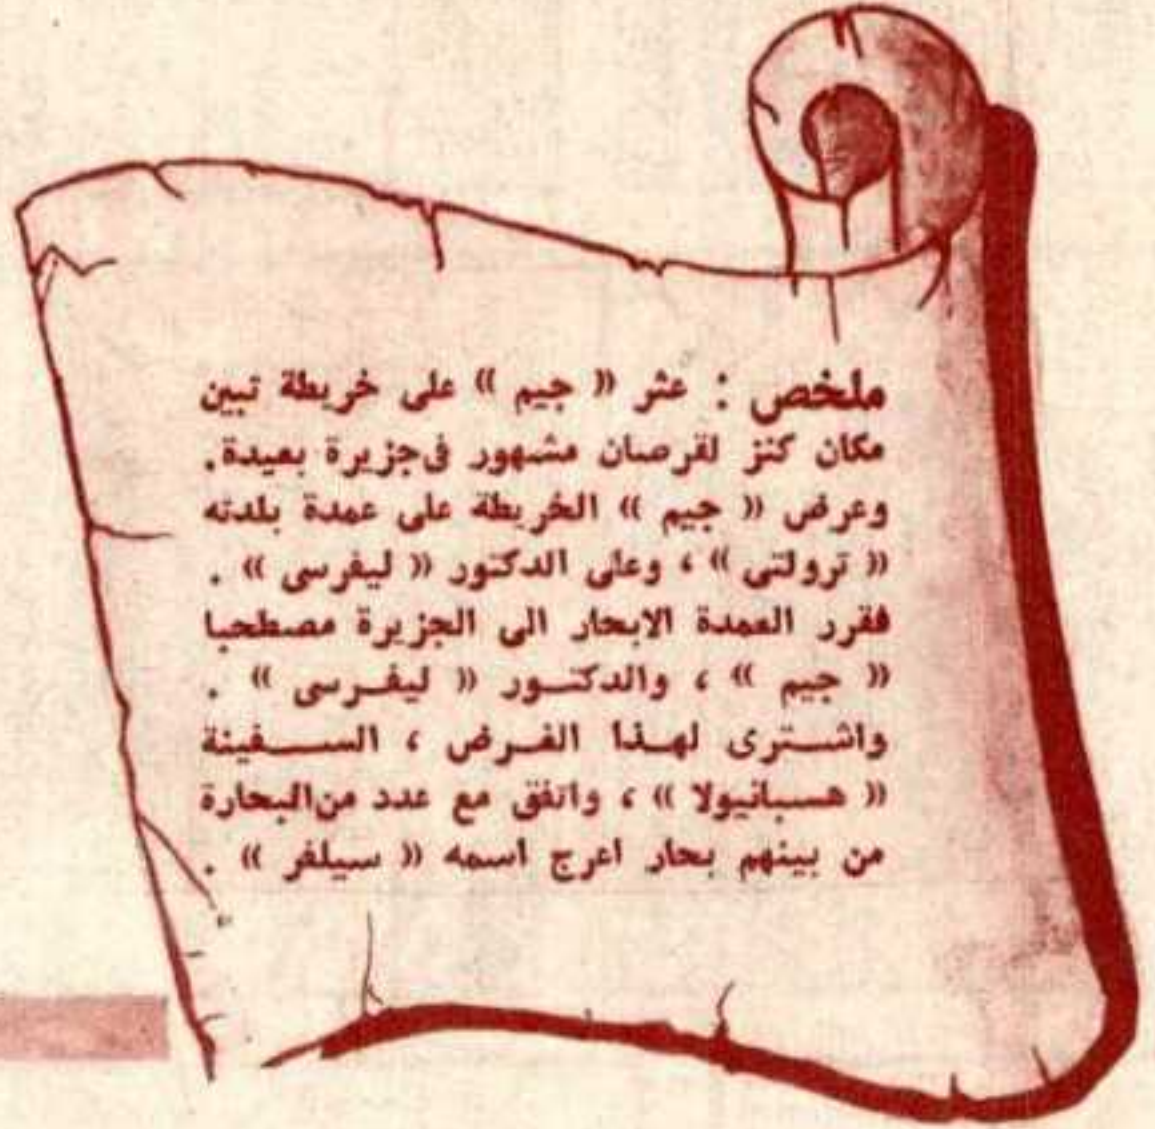 ملخص : عثر « جيم » على خريطة تبين
مكان كنز لقرصان مشهور في جزيرة بعيدة.
وعرض « جيم » الخريطة على عمدة بلدته
« ترولتى » ، وعلى الدكتور « ليفرسى » .
فقرر العمدة الابحار الى الجزيرة مصطحبا
« جيم » ، والدكتور « ليفرسى » .
واشترى لهذا الغرض ، السفينة
« هسبانيولا » ، واتفق مع عدد من البحارة
من بينهم بحار اعرج اسمه « سيلفر » .